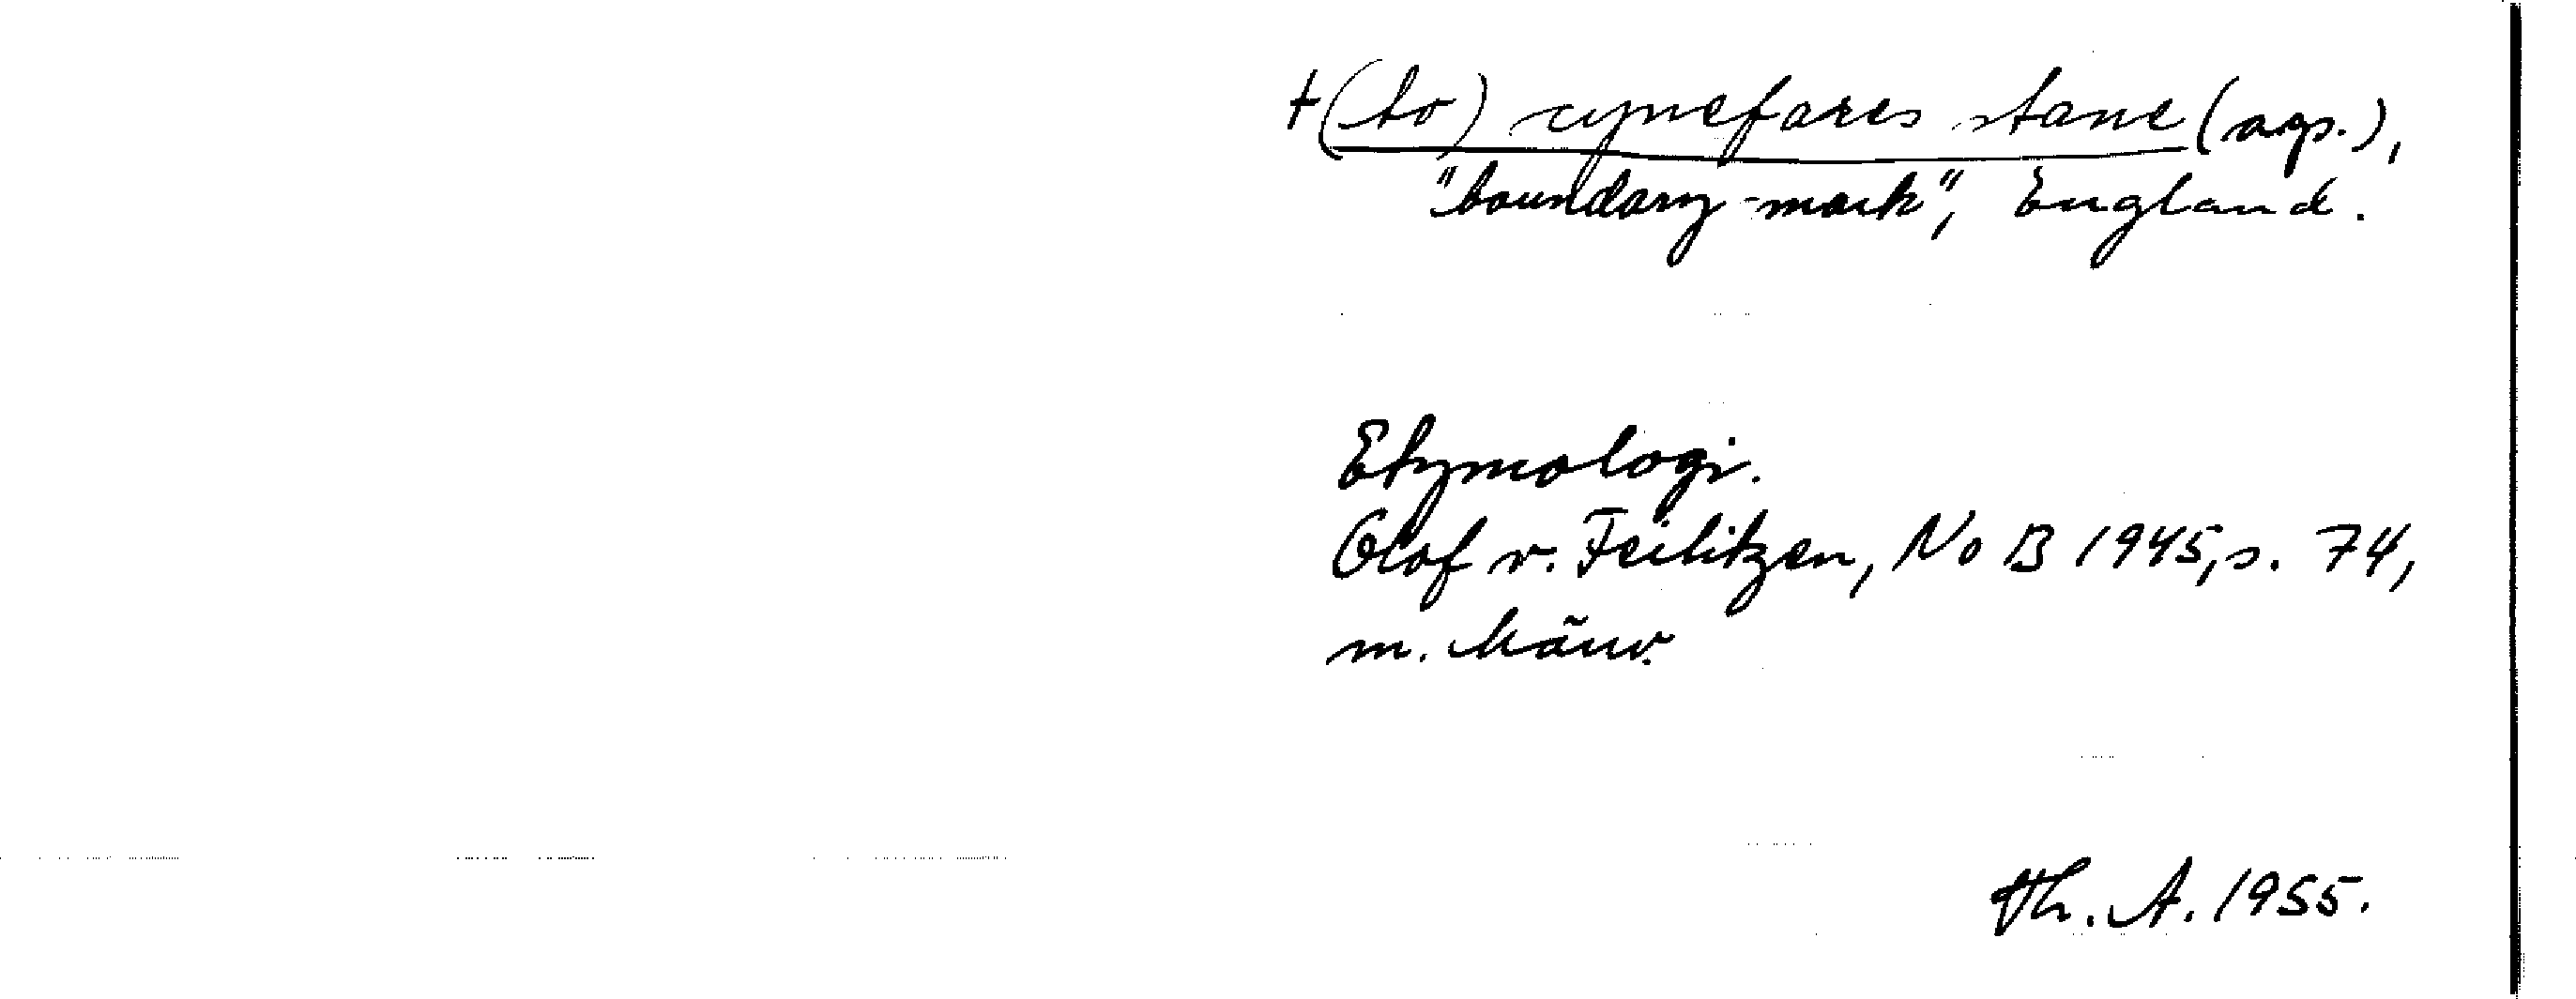 †(to) cynefares stane (ags.),
"boundary-mark", England.
Etymologi.
Olof v. Feilitzen, NoB 1945, s. 74,
m. hänv.
Th. A. 1955.